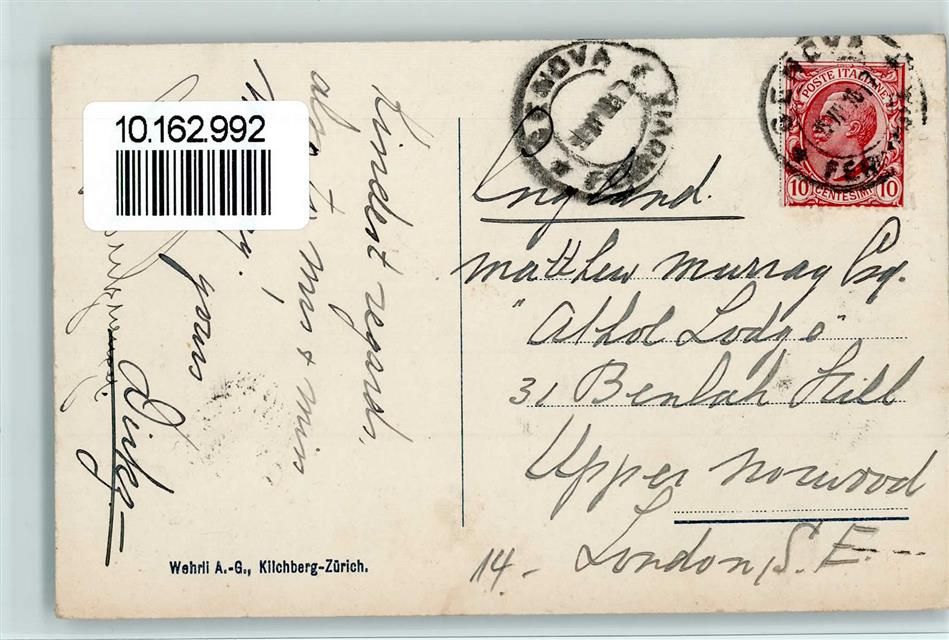 10.162.992
GENOVA
FERROVIA
GENOVA
FERROVIA
POSTE ITALIANE
10 CENTESIMI 10
England.
Matthew Murray Esq.
"Athol Lodge"
31 Beulah Hill
Upper Norwood
London, S.E.
14.
Kindest regards,
also to Mrs & Miss
Murray!
yours
Wehrli A.-G., Kilchberg-Zürich.